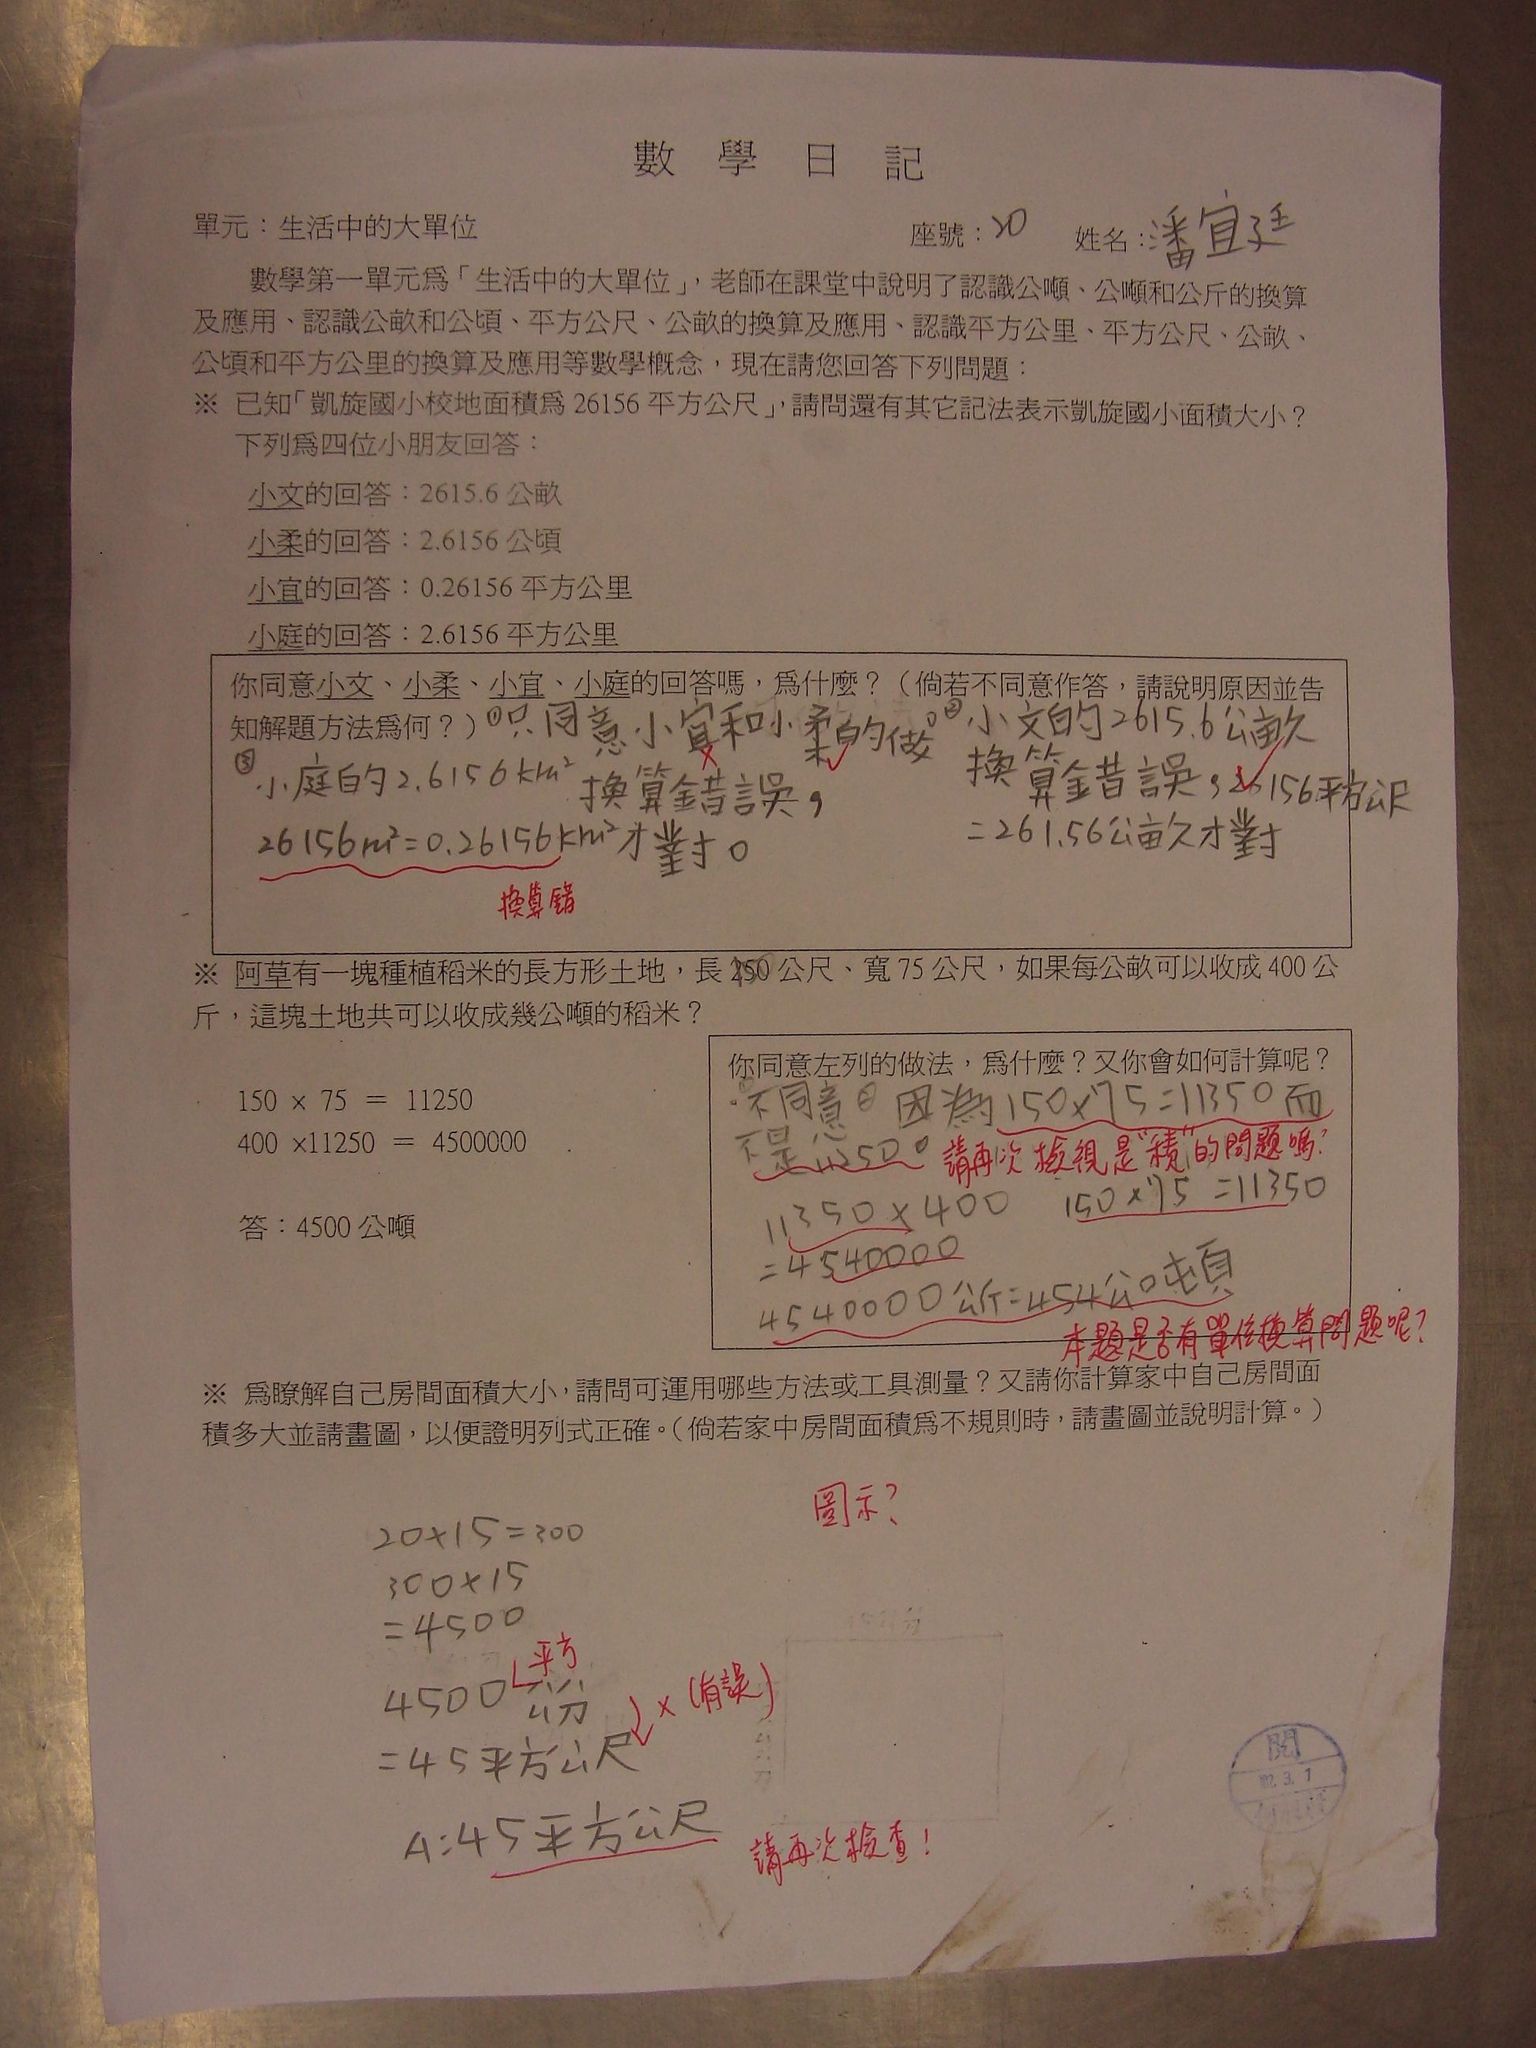 數學日記
單元：生活中的大單位 座號：20 姓名：潘宜廷
數學第一單元爲「生活中的大單位」，老師在課堂中說明了認識公噸、公噸和公斤的換算
及應用、認識公畝和公頃、平方公尺、公畝的換算及應用、認識平方公里、平方公尺、公畝、
公頃和平方公里的換算及應用等數學概念，現在請您回答下列問題：
※ 已知「凱旋國小校地面積爲 26156 平方公尺」，請問還有其它記法表示凱旋國小面積大小？
下列爲四位小朋友回答：
小文的回答：2615.6 公畝
小柔的回答：2.6156 公頃
小宜的回答：0.26156 平方公里
小庭的回答：2.6156 平方公里
你同意小文、小柔、小宜、小庭的回答嗎，爲什麼？（倘若不同意作答，請說明原因並告
知解題方法爲何？）①只同意小宜和小柔的做法。
②小文的2615.6公畝
換算錯誤，26156平方公尺
=261.56公畝才對
③小庭的2.6156km²換算錯誤，
26156m²=0.26156km²才對。
換算錯
※ 阿草有一塊種植稻米的長方形土地，長 150 公尺、寬 75 公尺，如果每公畝可以收成 400 公
斤，這塊土地共可以收成幾公噸的稻米？
150 × 75 = 11250
400 ×11250 = 4500000
答：4500 公噸
你同意左列的做法，爲什麼？又你會如何計算呢？
①不同意②因為150×75=11350而
不是11250。
請再次檢視是"積"的問題嗎？
150×75=11350
11350×400
=4540000
4540000公斤=454公噸
本題是否有單位換算問題呢？
※ 爲瞭解自己房間面積大小，請問可運用哪些方法或工具測量？又請你計算家中自己房間面
積多大並請畫圖，以便證明列式正確。（倘若家中房間面積爲不規則時，請畫圖並說明計算。）
圖示？
20×15=300
300×15
=4500
平方
4500公分
×(有誤)
=45平方公尺
A:45平方公尺
請再次檢查！
閱
3. 1